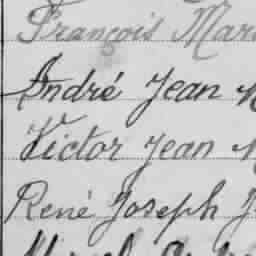 François
André Jean
Victor Jean
René Joseph